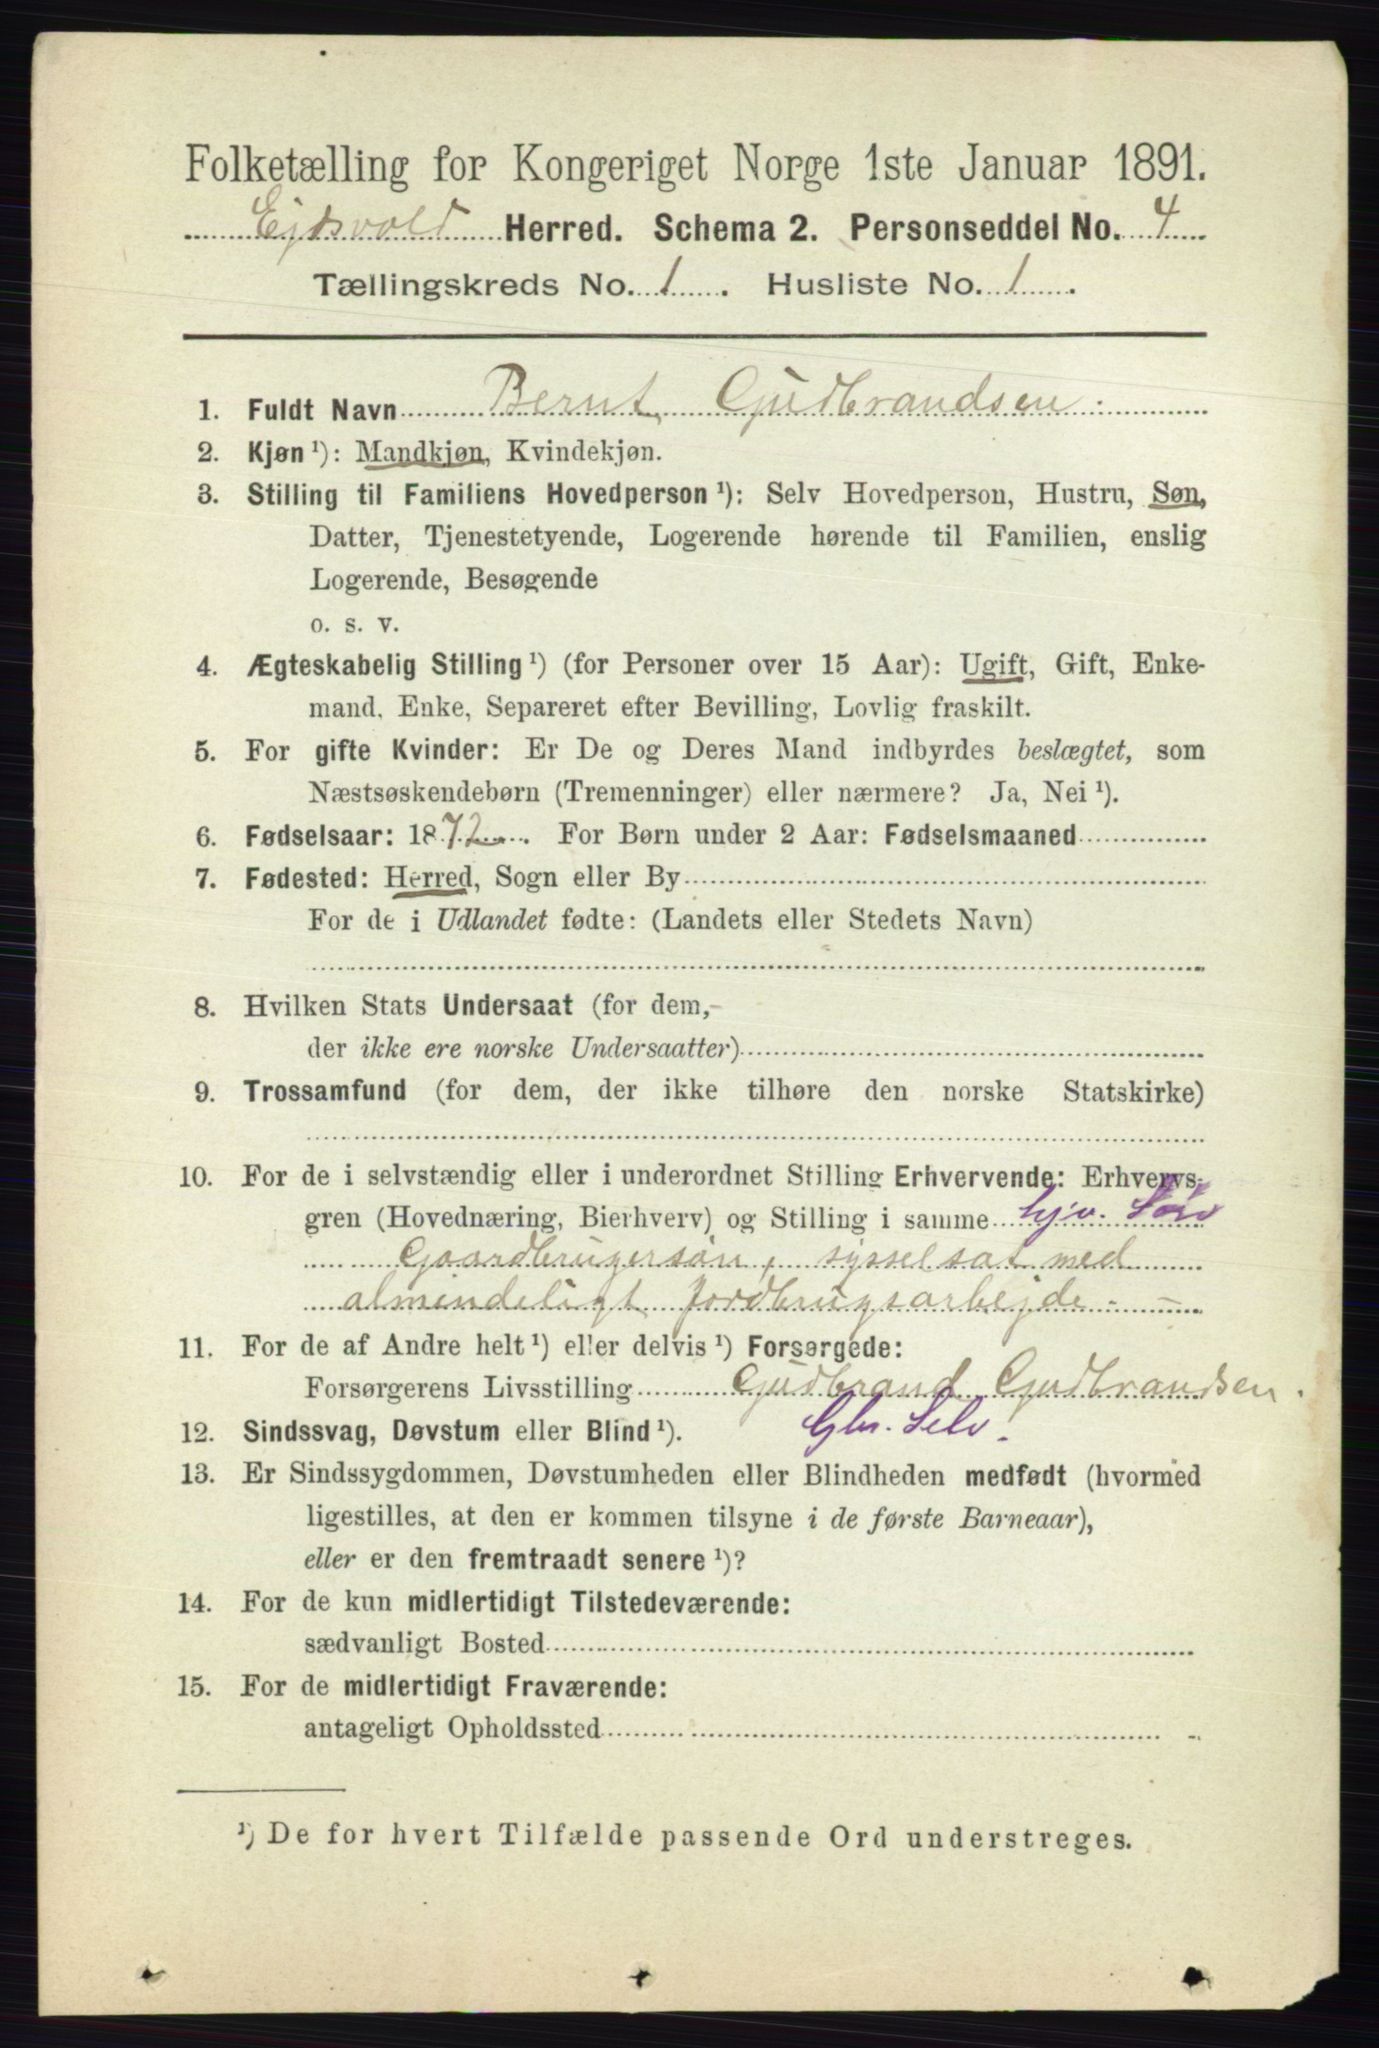 Folketælling for Kongeriget Norge 1ste Januar 1891.
Ejdsvold Herred. Schema 2. Personseddel No. 4
Tællingskreds No. 1. Husliste No. 1.
1. Fuldt Navn Bernt Gudbrandsen.
2. Kjøn ¹): Mandkjøn, Kvindekjøn.
3. Stilling til Familiens Hovedperson ¹): Selv Hovedperson, Hustru, Søn,
Datter, Tjenestetyende, Logerende hørende til Familien, enslig
Logerende, Besøgende
o. s. v.
4. Ægteskabelig Stilling ¹) (for Personer over 15 Aar): Ugift, Gift, Enke-
mand, Enke, Separeret efter Bevilling, Lovlig fraskilt.
5. For gifte Kvinder: Er De og Deres Mand indbyrdes beslægtet, som
Næstsøskendebørn (Tremenninger) eller nærmere? Ja, Nei ¹).
6. Fødselsaar: 1872. For Børn under 2 Aar: Fødselsmaaned
7. Fødested: Herred, Sogn eller By
For de i Udlandet fødte: (Landets eller Stedets Navn)
8. Hvilken Stats Undersaat (for dem,
der ikke ere norske Undersaatter)
9. Trossamfund (for dem, der ikke tilhøre den norske Statskirke)
10. For de i selvstændig eller i underordnet Stilling Erhvervende: Erhvervs-
gren (Hovednæring, Bierhverv) og Stilling i samme
Gaardbrugersøn, sysselsat med
almindeligt Jordbrugsarbejde. —
11. For de af Andre helt ¹) eller delvis ¹) Forsørgede:
Forsørgerens Livsstilling Gudbrand Gudbrandsen.
12. Sindssvag, Døvstum eller Blind ¹). Gbr. Selv.
13. Er Sindssygdommen, Døvstumheden eller Blindheden medfødt (hvormed
ligestilles, at den er kommen tilsyne i de første Barneaar),
eller er den fremtraadt senere ¹)?
14. For de kun midlertidigt Tilstedeværende:
sædvanligt Bosted
15. For de midlertidigt Fraværende:
antageligt Opholdssted
¹) De for hvert Tilfælde passende Ord understreges.